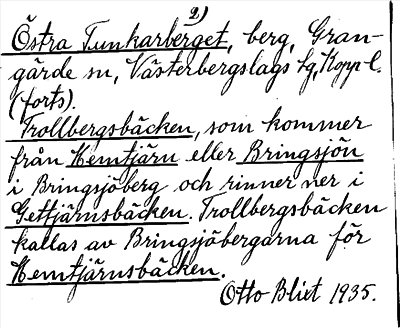 2)
Östra Tunkarberget, berg, Gran-
gärde sn, Västerbergslags fg, Kopp l.
(forts).
Trollbergsbäcken, som kommer
från Hemtjärn eller Bringsjön
i Bringsjöberg och rinner ner i
Gettjärnsbäcken. Trollbergsbäcken
kallas av Bringsjöbergarna för
Hemtjärnsbäcken.
Otto Blixt 1935.